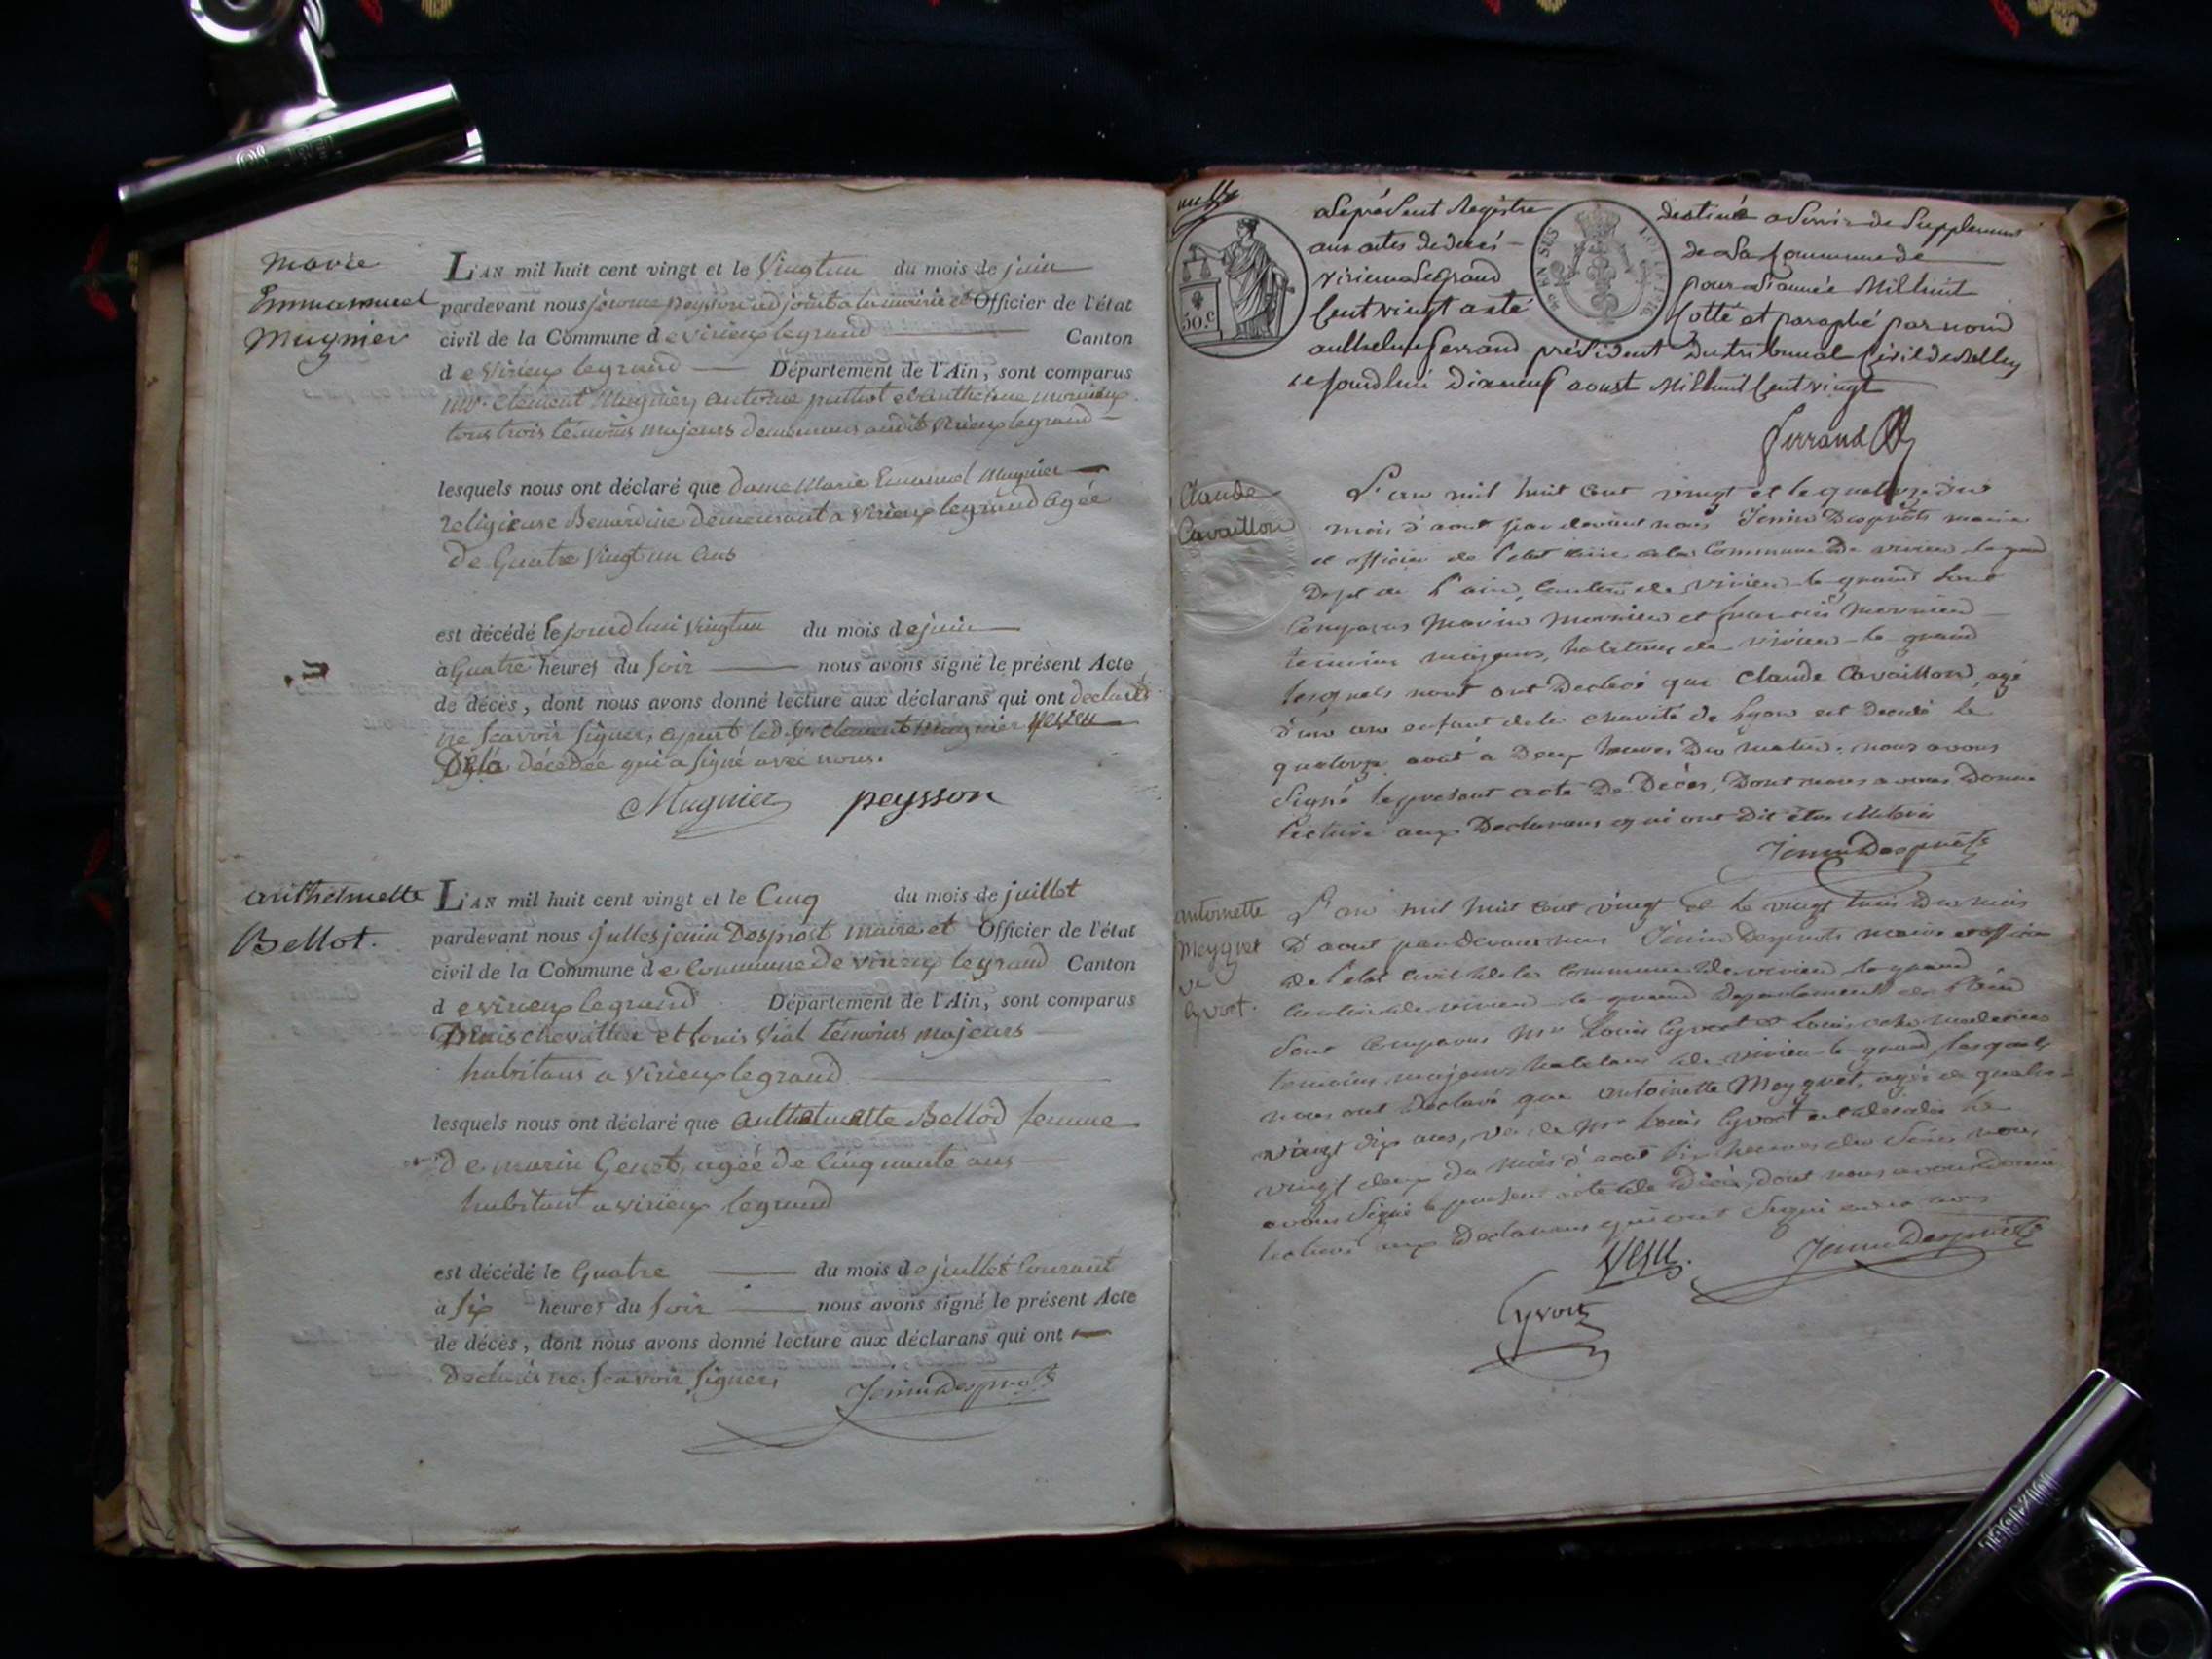 Marie
Emmanuel
Mugnier
L'AN mil huit cent vingt et le vingtun du mois de juin
pardevant nous jerome peysson adjoint a la mairie et Officier de l'état
civil de la Commune de virieux legrand Canton
de Virieux legrand Département de l'Ain, sont comparus
mr. Clement Mugnier, antoine puthot et anthelme
tous trois témoins majeurs demeurans audit Virieux legrand
lesquels nous ont déclaré que dame Marie Emanuel Mugnier
religieuse Benardine demeurant a Virieux legrand agée
de Quatre vingt un ans
est décédé le jourdhui vingtun du mois de juin
à Quatre heures du soir nous avons signé le présent Acte
de décès, dont nous avons donné lecture aux déclarans qui ont declarés
ne scavoir signer, apart led. sr. Clement Mugnier neveu
de la décédée qui a signé avec nous.
Mugnier peysson
Anthelmette
Bellot.
L'AN mil huit cent vingt et le Cinq du mois de juillet
pardevant nous Julles jenin Desprost maire et Officier de l'état
civil de la Commune de Commune de virieux legrand Canton
de virieux legrand Département de l'Ain, sont comparus
Denis chevallier et Louis Vial témoins majeurs
habitans a Virieux legrand
lesquels nous ont déclaré que anthelmette Bellod femme
de marin Genet, agée de Cinquante ans
habitant a virieux legrand
est décédé le Quatre du mois de juillet Courant
à six heures du soir nous avons signé le présent Acte
de décès, dont nous avons donné lecture aux déclarans qui ont
Declarés ne scavoir signer,
Jenin Desprost
Le présent Registre destiné a servir de Supplement
aux actes de décés de la Commune de
virieu Le grand pour l'année Mil huit
Cent vingt a eté Cotté et paraphé par nous
anthelme ferrand président du tribunal Civil de Belley
ce jourdhui dixneuf aoust Mil huit Cent vingt
50.c
Ferrand
Claude
Cavaillon
L'an mil huit cent vingt et le quatorze du
mois d'aout par devant nous Jenin Desprosts maire
et officier de l'etat civil de la Commune de virieu le grand
Dept de l'ain, Canton de virieu le grand sont
Comparus Marin Mornieu et francois Mornieu
temoins majeurs, habitans de virieu le grand
lesquels nous ont Declaré que Claude Cavaillon, agé
d'un an enfant de la charité de Lyon est decedé le
quatorze aout a Deux heures Du matin. nous avons
signé le present acte De Décès, Dont nous avons Donné
lecture aux Declarans qui ont Dit etre illétrés
Jenin Desprosts
antoinette
Meygret
ve
Cyvoct.
L'an mil huit cent vingt et le vingt trois Du mois
D'aout par Devant nous Jenin Desprosts maire et officier
De l'etat civil de la Commune de virieu le grand
Canton de virieu le grand Departement de l'Ain
sont comparus Mr Louis Cyvoct et Louis
temoins majeurs habitans de virieu le grand, lesquels
nous ont Declaré que antoinette Meygret, agée de quatre
vingt dix ans, ve de Mr Louis Cyvoct est decedée le
vingt deux du mois d'aout six heures du soir nous
avons signé le present acte de Décès, dont nous avons Donné
lecture aux Declarans qui ont signé avec nous
Jenin Desprosts
Cyvoct